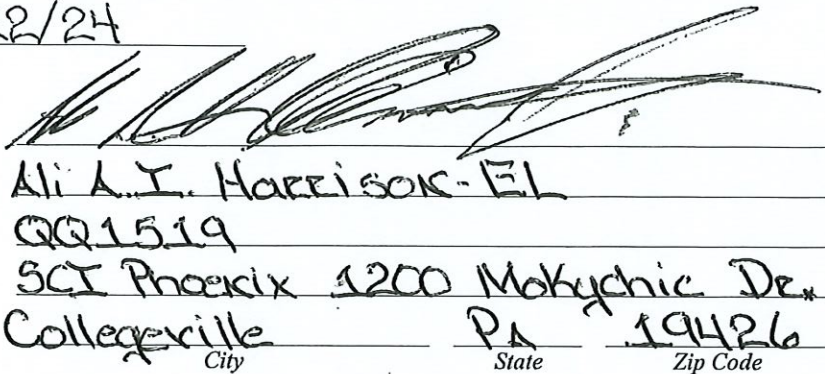 2/24
Ali A.I. Harrison-EL
QQ1519
SCI Phoenix 1200 Mokychic Dr.
Collegeville PA 19426
City State Zip Code